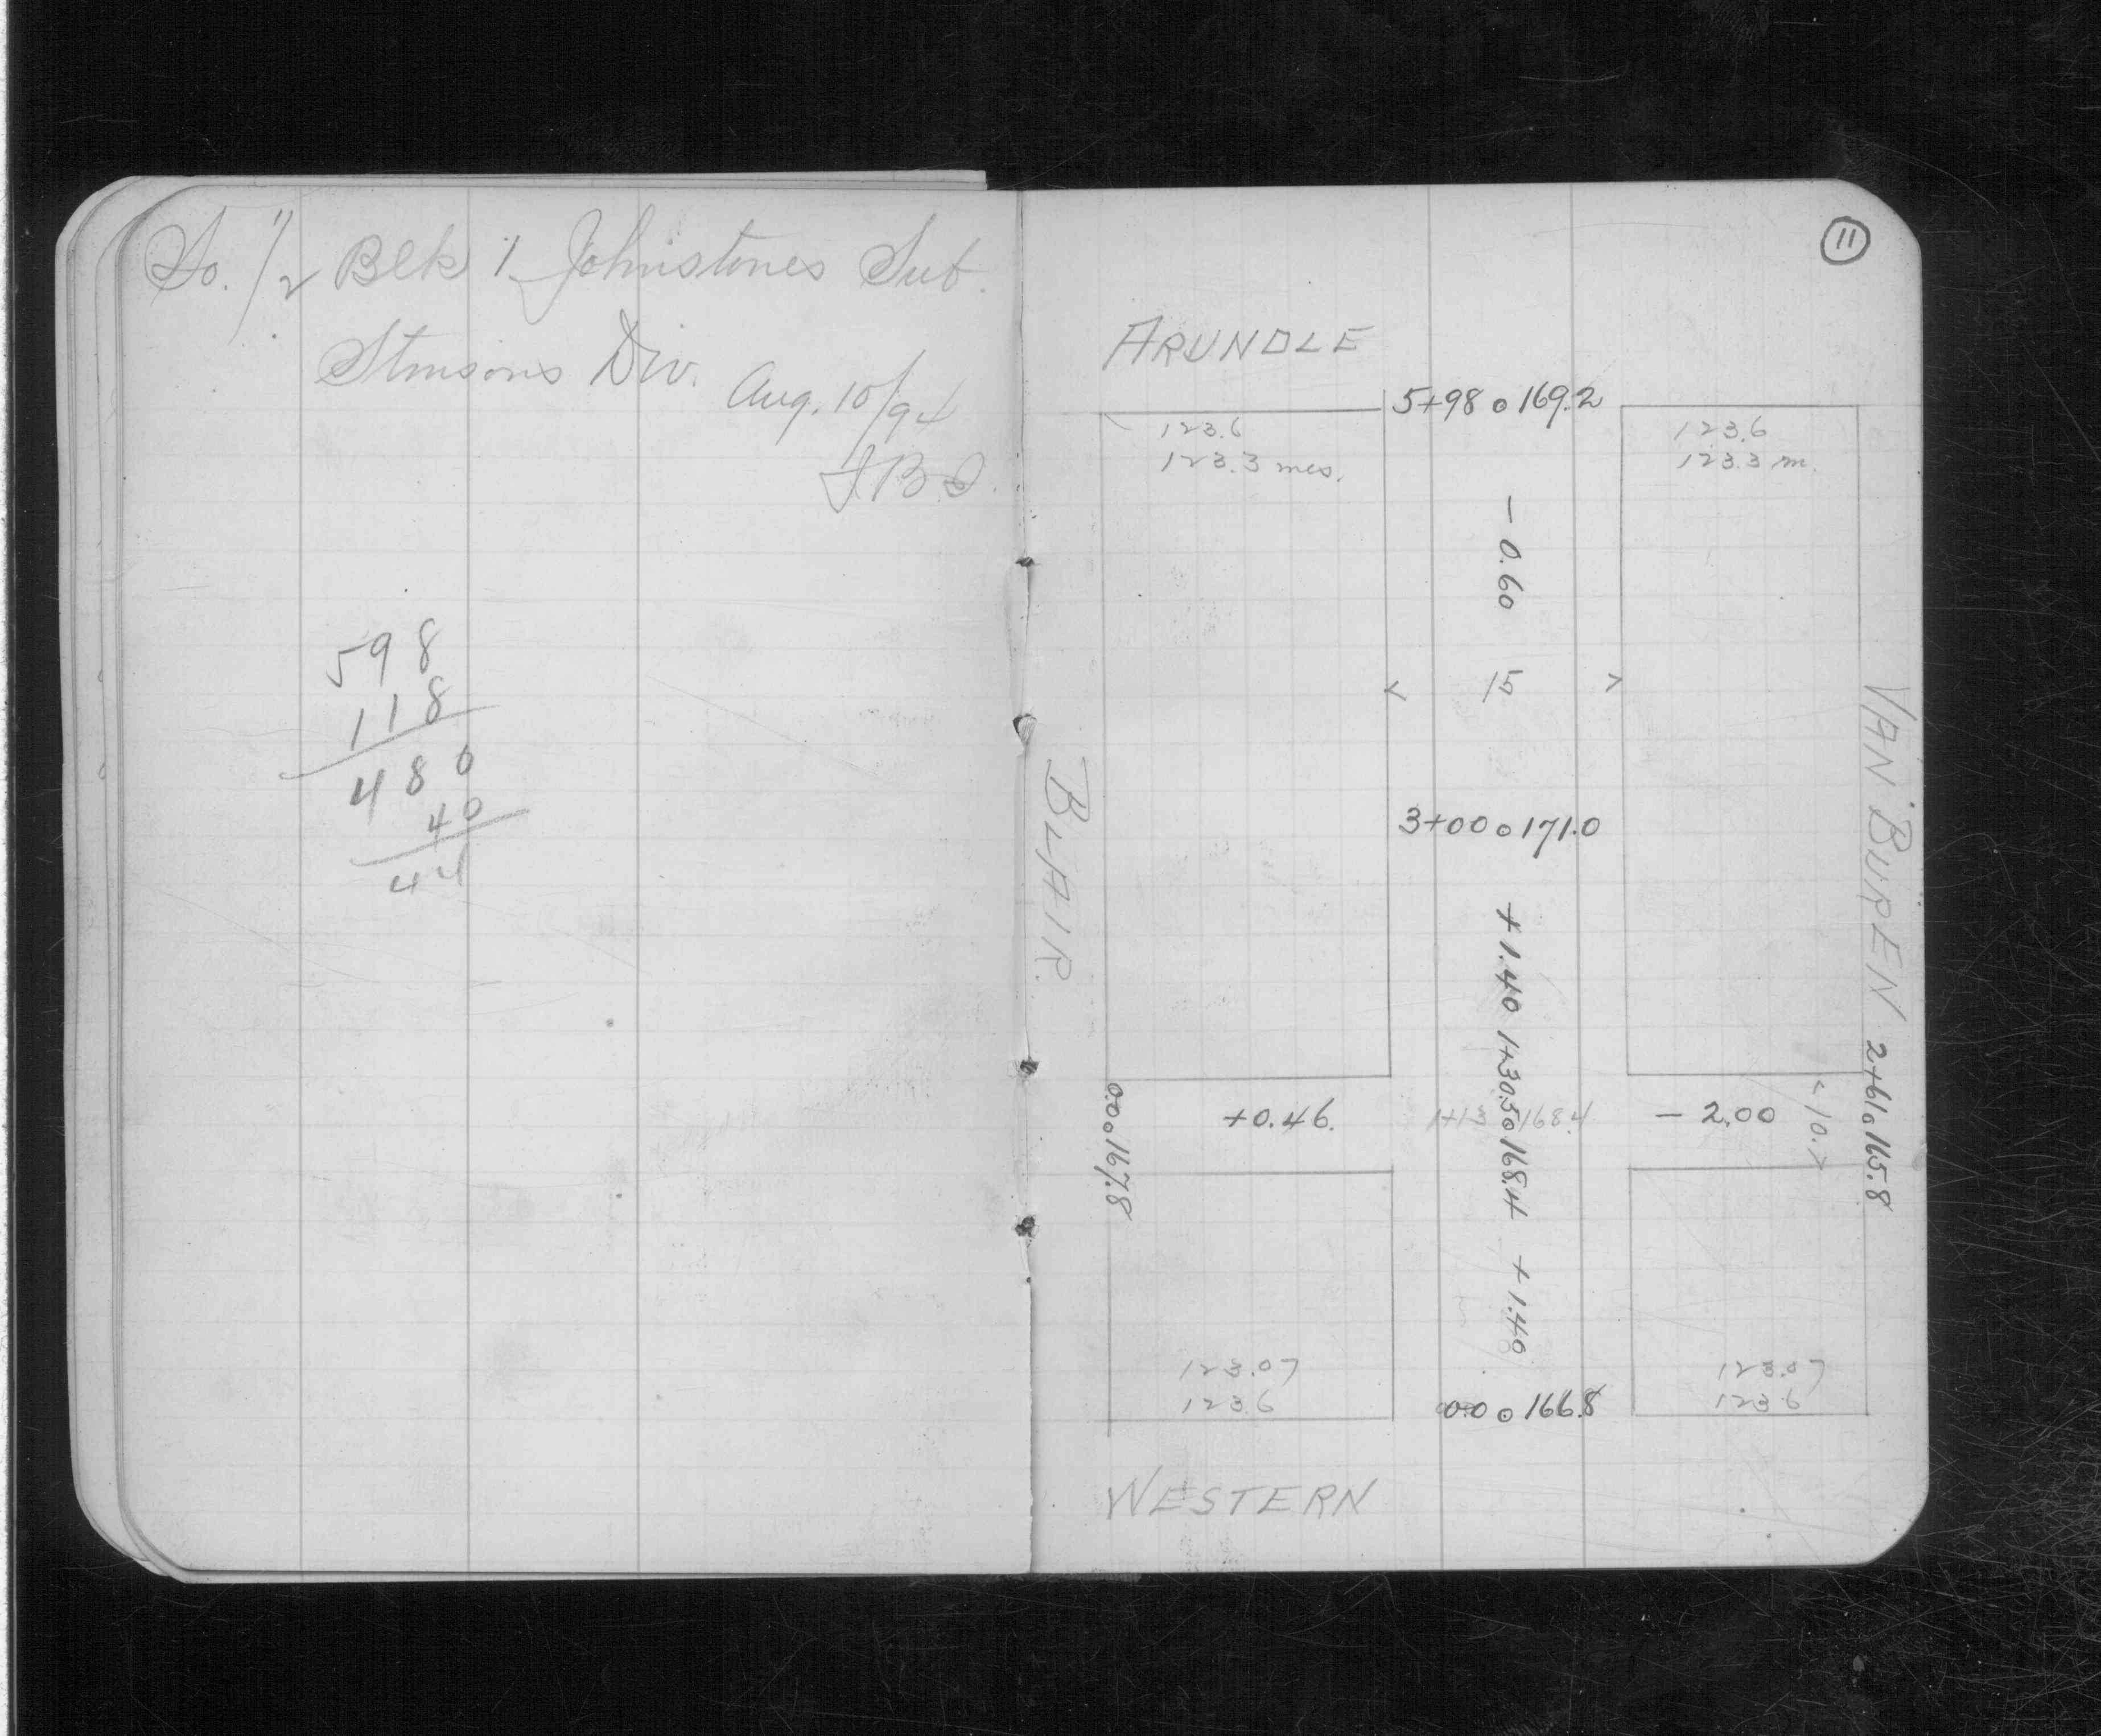 So. 1/2 Blk 1 Johnstones Sub.
Stinsons Div.
Aug. 10/94
598
118
480
40
44
11
ARUNDLE
5+98 o 169.2
123.6
123.3 mes.
123.6
123.3 m.
- 0.60
< 15 >
VAN BUREN
BLAIR.
3+00 o 171.0
+ 1.40
1+30.5 o 168.4
2+61 o 165.8
0.0 o 167.8
+0.46.
1+13 168.4
- 2.00
<10.>
+ 1.40
123.07
123.6
123.07
123.6
0.0 o 166.8
WESTERN